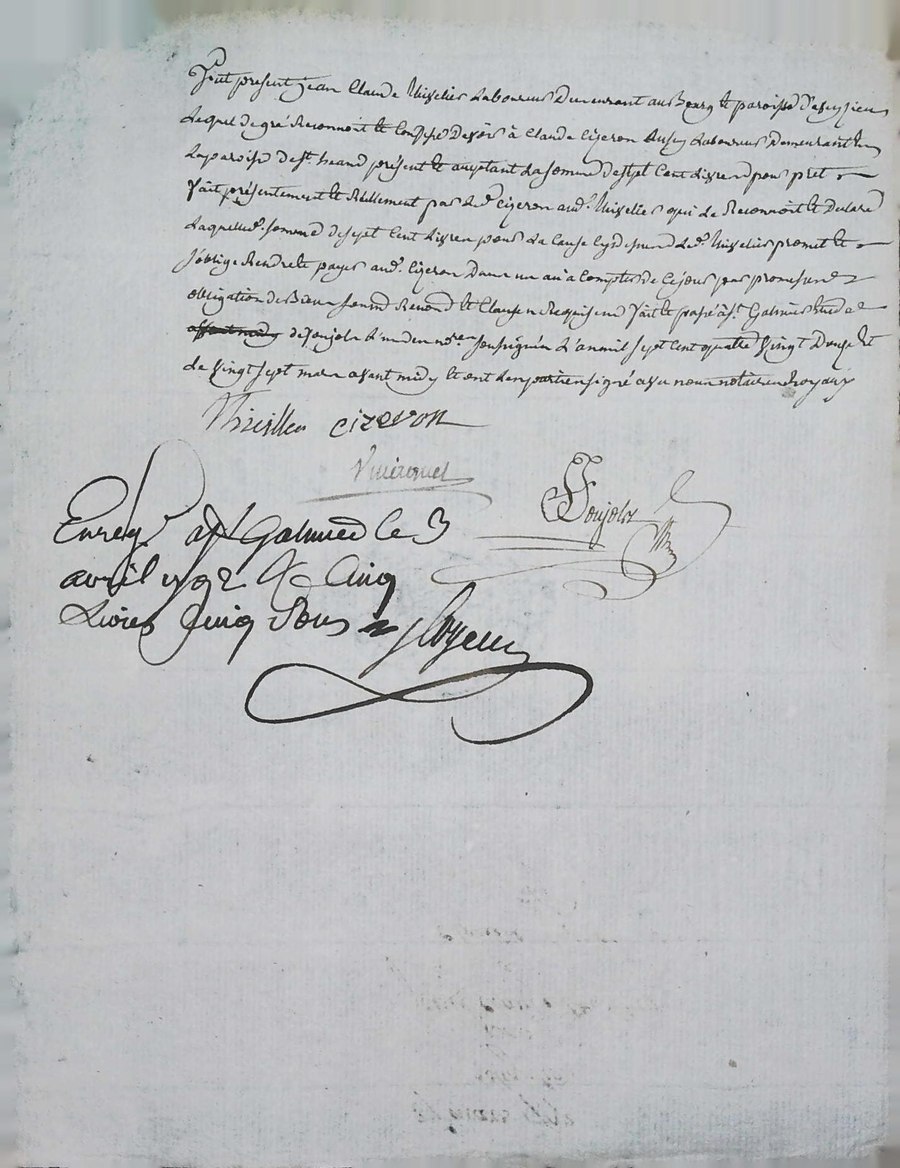 fut present jean Claude Thiselier Laboureur Demeurant au Bourg et paroisse d'aveyzieu
Lequel de gré Reconnoit et Confesse Devoir à Claude Cizeron aussy Laboureur Demeurant en
La paroisse de st. heand présent et acceptant La somme de sept Cent Livres pour prêt
fait présentement et Réellement par Led. Cizeron aud. Thiselier qui Le Reconnoit et Declare
Laquelle d. somme de sept Cent Livres pour La Cause cy dessus Led. Thiselier promet et
s'oblige Rendre et payer aud. Cizeron Dans un an à Compter de Ce jour par promesse
obligation de Biens soumis Renon et Clauses Requises fait et passé à st. Galmier étude
de Joujoly L'un des nores soussignés L'an mil sept Cent quatre Vingt Douze et
Le Vingt sept mars avant midy et ont Les parties signé avec nous notaires Royaux
Thisellier cizeron
Joujoly
Enreg a st Galmier le 3
avril 1792 R Cinq
Livres Cinq Sous